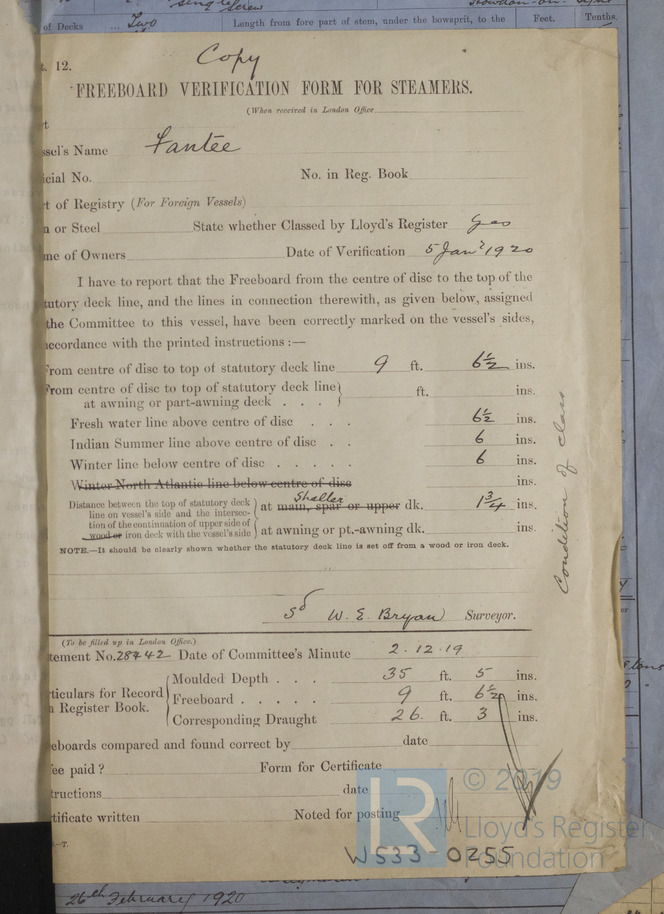 of Decks ... Two Length from fore part of stem, under the bowsprit, to the Feet. Tenths.
screw
t. 12.
Copy
FREEBOARD VERIFICATION FORM FOR STEAMERS.
(When received in London Office
t
ssel's Name Fantee
icial No. No. in Reg. Book
t of Registry (For Foreign Vessels)
n or Steel State whether Classed by Lloyd's Register yes
me of Owners Date of Verification 5 Jany 1920
I have to report that the Freeboard from the centre of disc to the top of the
tutory deck line, and the lines in connection therewith, as given below, assigned
the Committee to this vessel, have been correctly marked on the vessel's sides,
accordance with the printed instructions :—
From centre of disc to top of statutory deck line 9 ft. 6½ ins.
From centre of disc to top of statutory deck line
at awning or part-awning deck . . . ft. ins.
Fresh water line above centre of disc . . . 6½ ins.
Indian Summer line above centre of disc . . 6 ins.
Winter line below centre of disc . . . . . 6 ins.
Winter North Atlantic line below centre of disc ins.
Distance between the top of statutory deck
line on vessel's side and the intersec-
tion of the continuation of upper side of
wood or iron deck with the vessel's side
Shelter
at main, spar or upper dk. 1¾ ins.
at awning or pt.-awning dk. ins.
NOTE.—It should be clearly shown whether the statutory deck line is set off from a wood or iron deck.
Condition of class
sd W. E. Bryan Surveyor.
(To be filled up in London Office.)
tement No. 28442 Date of Committee's Minute 2.12.19
rticulars for Record
n Register Book.
Moulded Depth . . . 35 ft. 5 ins.
Freeboard . . . . . 9 ft. 6½ ins.
Corresponding Draught 26. ft. 3 ins.
eboards compared and found correct by date
Fee paid ? Form for Certificate
tructions date
rtificate written Noted for posting
.—T.
© 2019
Lloyd's Register
Foundation
LR
W533 0255
26th February 1920